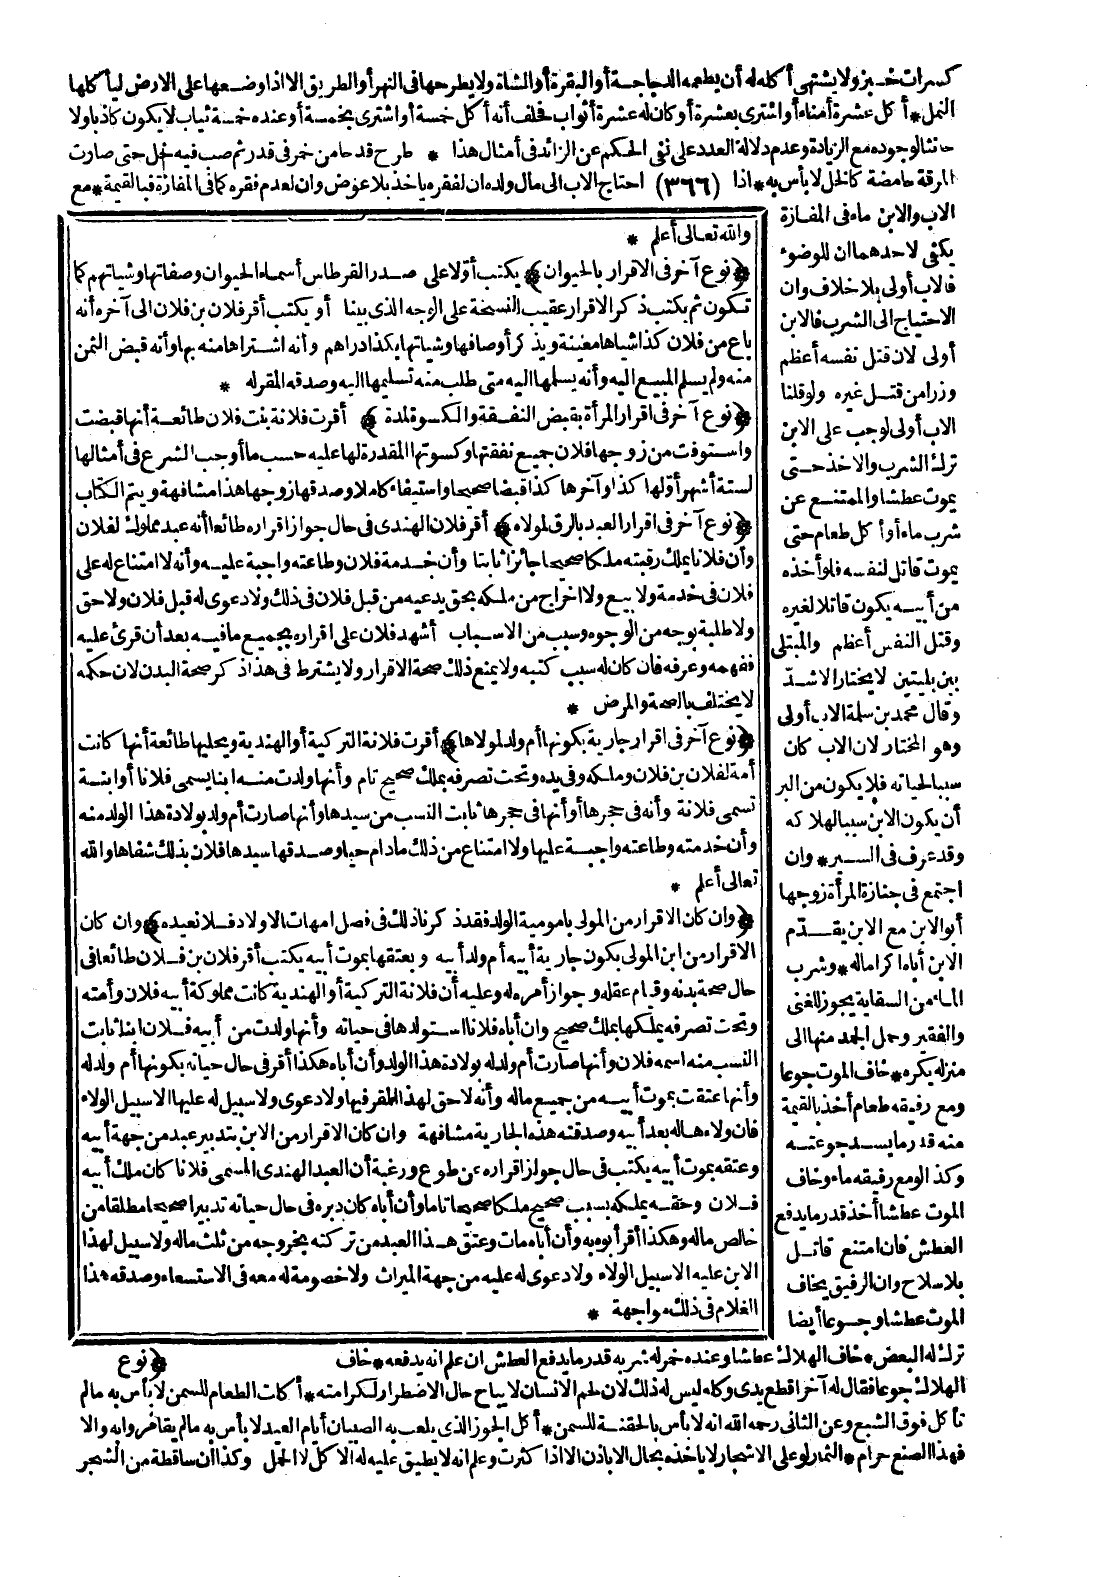 كسرات خبز ولا يشتهى أكله له أن يطعمه الدجاجة أو البقرة أو الشاة ولا يطرحها فى النهر أو الطريق الا اذا وضعها على الارض ليأكلها
النمل * أكل عشرة أمناء أو اشترى بعشرة أو كان له عشرة أثواب فحلف أنه أكل خمسة أو اشترى بخمسة أو عنده خمسة ثياب لا يكون كاذبا ولا
حانثا لوجوده مع الزيادة وعدم دلالة العدد على نفى الحكم عن الزائد فى أمثال هذا * طرح قدحا من خمر فى قدر ثم صب فيه خل حتى صارت
المرقة حامضة كالخل لا بأس به * اذا (٣٦٦) احتاج الاب الى مال ولده ان لفقره يأخذ بلا عوض وان لعدم فقره كما فى المفازة فبالقيمة * مع
الاب والابن ماء فى المفازة
يكفى لاحدهما ان للوضوء
فالاب أولى بلا خلاف وان
الاحتياج الى الشرب فالابن
أولى لان قتل نفسه أعظم
وزرا من قتل غيره ولو قلنا
الاب أولى لوجب على الابن
ترك الشرب والاخذ حتى
يموت عطشا والممتنع عن
شرب ماء أو أكل طعام حتى
يموت قاتل لنفسه فلو أخذه
من أبيه يكون قاتلا لغيره
وقتل النفس أعظم والمبتلى
بين بليتين لا يختار الاشد
وقال محمد بن سلمة الاب أولى
وهو المختار لان الاب كان
سببا لحياته فلا يكون من البر
أن يكون الابن سببا لهلاكه
وقد عرف فى السير * وان
اجتمع فى جنازة المرأة زوجها
أبو الابن مع الابن يقدم
الابن أباه اكراما له * وشرب
الماء من السقاية يجوز للغنى
والفقير وحمل الجمد منها الى
منزله يكره * خاف الموت جوعا
ومع رفيقه طعام أخذ بالقيمة
منه قدر ما يسد جوعته
وكذا لو مع رفيقه ماء وخاف
الموت عطشا أخذ قدر ما يدفع
العطش فان امتنع قاتل
بلا سلاح وان الرفيق يخاف
الموت عطشا وجوعا أيضا
ترك له البعض * خاف الهلاك عطشا وعنده خمر له شربه قدر ما يدفع العطش ان علم انه يدفعه * خاف
الهلاك جوعا فقال له آخر اقطع يدى وكله ليس له ذلك لان لحم الانسان لا يباح حال الاضطرار لكرامته * أكلت الطعام للسمن لا بأس به ما لم
تأكل فوق الشبع وعن الثانى رحمه الله انه لا بأس بالحقنة للسمن * أكل الجوز الذى يلعب به الصبيان أيام العيد لا بأس به ما لم يقامروا به والا
فهذا الصنع حرام * الثمار لو على الاشجار لا يأخذه بحال الا باذن الا اذا كثرت وعلم انه لا يطيق عليه له الاكل لا الحمل وكذا ان ساقطة من الشجر
والله تعالى أعلم *
﴿نوع آخر فى الاقرار بالحيوان﴾ يكتب أولا على صدر القرطاس أسماء الحيوان وصفاتها وشياتهم كما
تكون ثم يكتب ذكر الاقرار عقيب النسخة على الوجه الذى بينا أو يكتب أقر فلان بن فلان الى آخره أنه
باع من فلان كذا شياها معينة ويذكر أوصافها وشياتها بكذا دراهم وأنه اشتراها منه بها وأنه قبض الثمن
منه ولم يسلم المبيع اليه وأنه يسلمها اليه متى طلب منه تسليمها اليه وصدقه المقر له *
﴿نوع آخر فى اقرار المرأة بقبض النفقة والكسوة لمدة﴾ أقرت فلانة بنت فلان طائعة أنها قبضت
واستوفت من زوجها فلان جميع نفقتها وكسوتها المقدرة لها عليه حسب ما أوجب الشرع فى أمثالها
لستة أشهر أولها كذا وآخرها كذا قبضا صحيحا واستيفاء كاملا وصدقها زوجها هذا مشافهة ويتم الكتاب
﴿نوع آخر فى اقرار العبد بالرق لمولاه﴾ أقر فلان الهندى فى حال جواز اقراره طائعا أنه عبد مملوك لفلان
وأن فلانا يملك رقبته ملكا صحيحا جائزا ثابتا وأن خدمة فلان وطاعته واجبة عليه وأنه لا امتناع له على
فلان فى خدمة ولا بيع ولا اخراج من ملكه بحق يدعيه من قبل فلان فى ذلك ولا دعوى له قبل فلان ولا حق
ولا طلبة بوجه من الوجوه وسبب من الاسباب أشهد فلان على اقراره بجميع ما فيه بعد أن قرئ عليه
ففهمه وعرفه فان كان له سبب كتبه ولا يمنع ذلك صحة الاقرار ولا يشترط فى هذا ذكر صحة البدن لان حكمه
لا يختلف بالصحة والمرض *
﴿نوع آخر فى اقرار جارية بكونها أم ولد لمولاها﴾ أقرت فلانة التركية أو الهندية ويحليها طائعة أنها كانت
أمة لفلان بن فلان وملكه وفى يده وتحت تصرفه بملك صحيح تام وأنها ولدت منه ابنا يسمى فلانا أو ابنة
تسمى فلانة وأنه فى حجرها أو أنها فى حجرها ثابت النسب من سيدها وأنها صارت أم ولد بولادة هذا الولد منه
وأن خدمته وطاعته واجبة عليها ولا امتناع من ذلك ما دام حيا وصدقها سيدها فلان بذلك شفاها والله
تعالى أعلم *
﴿وان كان الاقرار من المولى بامومية الولد فقد ذكرنا ذلك فى فصل امهات الاولاد فلا نعيده﴾ وان كان
الاقرار من ابن المولى بكون جارية أبيه أم ولد أبيه وبعتقها بموت أبيه يكتب أقر فلان بن فلان طائعا فى
حال صحة بدنه وقيام عقله وجواز أمره له وعليه أن فلانة التركية أو الهندية كانت مملوكة أبيه فلان وأمته
وتحت تصرفه يملكها بملك صحيح وان أباه فلانا استولدها فى حياته وأنها ولدت من أبيه فلان ابنا ثابت
النسب منه اسمه فلان وأنها صارت أم ولد له بولادة هذا الولد وأن أباه هكذا أقر فى حال حياته بكونها أم ولد له
وأنها عتقت بموت أبيه من جميع ماله وأنه لا حق لهذا المقر فيها ولا دعوى ولا سبيل له عليها الا سبيل الولاء
فان ولاءها له بعد أبيه وصدقته هذه الجارية مشافهة وان كان الاقرار من الابن بتدبير عبد من جهة أبيه
وعتقه بموت أبيه يكتب فى حال جواز اقراره عن طوع ورغبة أن العبد الهندى المسمى فلانا كان ملك أبيه
فلان وحقه يملكه بسبب صحيح ملكا صحيحا تاما وأن أباه كان دبره فى حال حياته تدبيرا صحيحا مطلقا من
خالص ماله وهكذا أقر أبوه به وأن أباه مات وعتق هذا العبد من تركته بخروجه من ثلث ماله ولا سبيل لهذا
الابن عليه الا سبيل الولاء ولا دعوى له عليه من جهة الميراث ولا خصومة له معه فى الاستسعاء وصدقه هذا
الغلام فى ذلك مواجهة *
﴿نوع